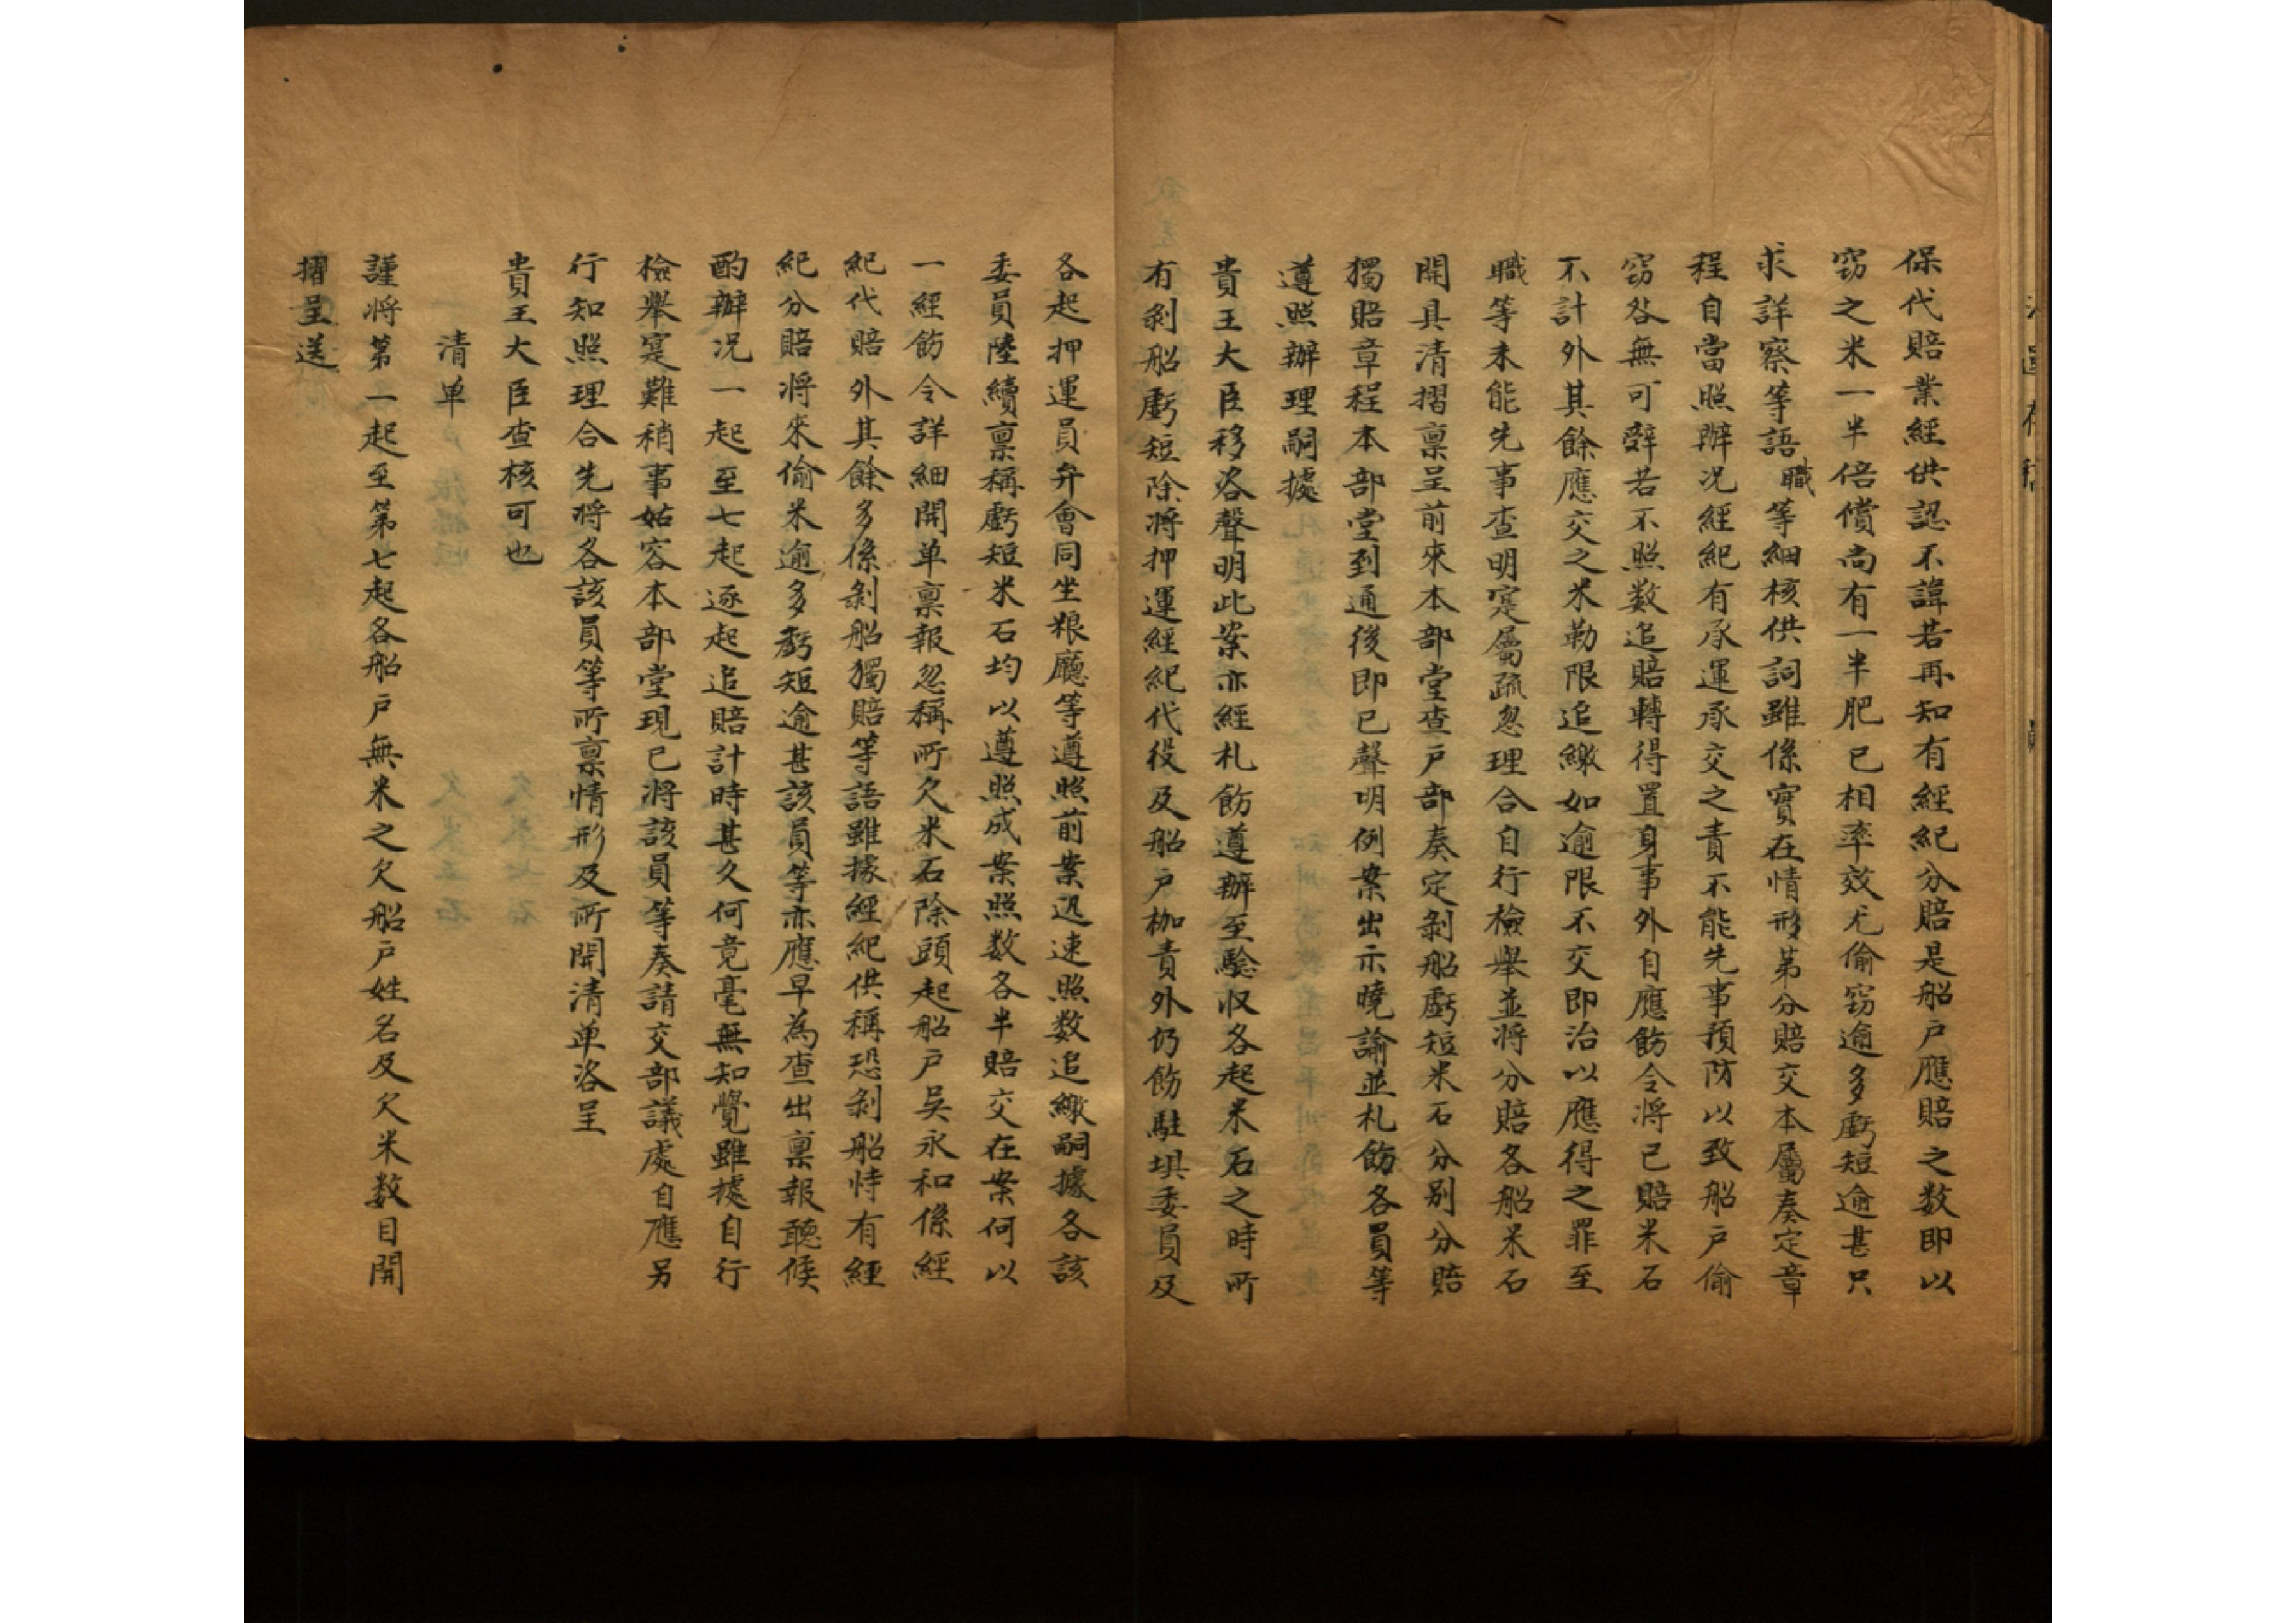 保代賠業經供認不諱若再知有經紀分賠是船戶應賠之数即以
窃之米一半倍償尚有一半肥已相率效尤偷窃逾多虧短逾甚只
求詳察等語職等細核供詞雖係實在情形第分賠交本屬奏定章
程自當照辦况經紀有承運承交之責不能先事預防以致船戶偷
窃咎無可辤若不照数追賠轉得置身事外自應飭令將已賠米石
不計外其餘應交之米勒限追繳如逾限不交即治以應得之罪至
職等未能先事查明寔屬疏忽理合自行檢舉並將分賠各船米石
開具清摺禀呈前來本部堂查戶部奏定剝船虧短米石分别分賠
獨賠章程本部堂到通後即已聲明例案出示曉諭並札飭各員等
遵照辦理嗣據
貴王大臣移咨聲明此案亦經札飭遵辦至驗収各起米石之時所
有剝船虧短除將押運經紀代役及船戶枷責外仍飭駐垻委員及
各起押運員弁會同坐粮廳等遵照前案迅速照数追繳嗣據各該
委員陸續禀稱虧短米石均以遵照成案照数各半賠交在案何以
一經飭令詳細開单禀報忽稱所欠米石除頭起船戶吳永和係經
紀代賠外其餘多係剝船獨賠等語雖據經紀供稱恐剝船恃有經
紀分賠將來偷米逾多虧短逾甚該員等亦應早為查出禀報聽候
酌辦况一起至七起逐起追賠計時甚久何竟毫無知覺雖據自行
檢舉寔難稍事姑容本部堂現已將該員等奏請交部議處自應另
行知照理合先將各該員等所禀情形及所開清单咨呈
貴王大臣查核可也
清单
謹將第一起至第七起各船戶無米之欠船戶姓名及欠米数目開
摺呈送